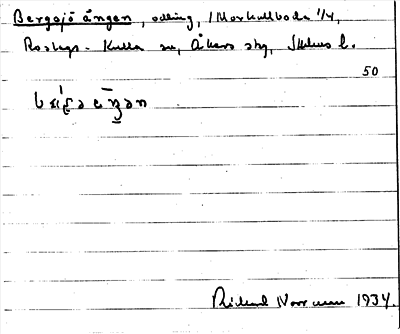 Bergsjö ängen, odling, 1 Morkullboda 1/4,
Roslags-Kulla sn, Åkers skg, Sthlms l.
50
Rickard Norrman 1934.